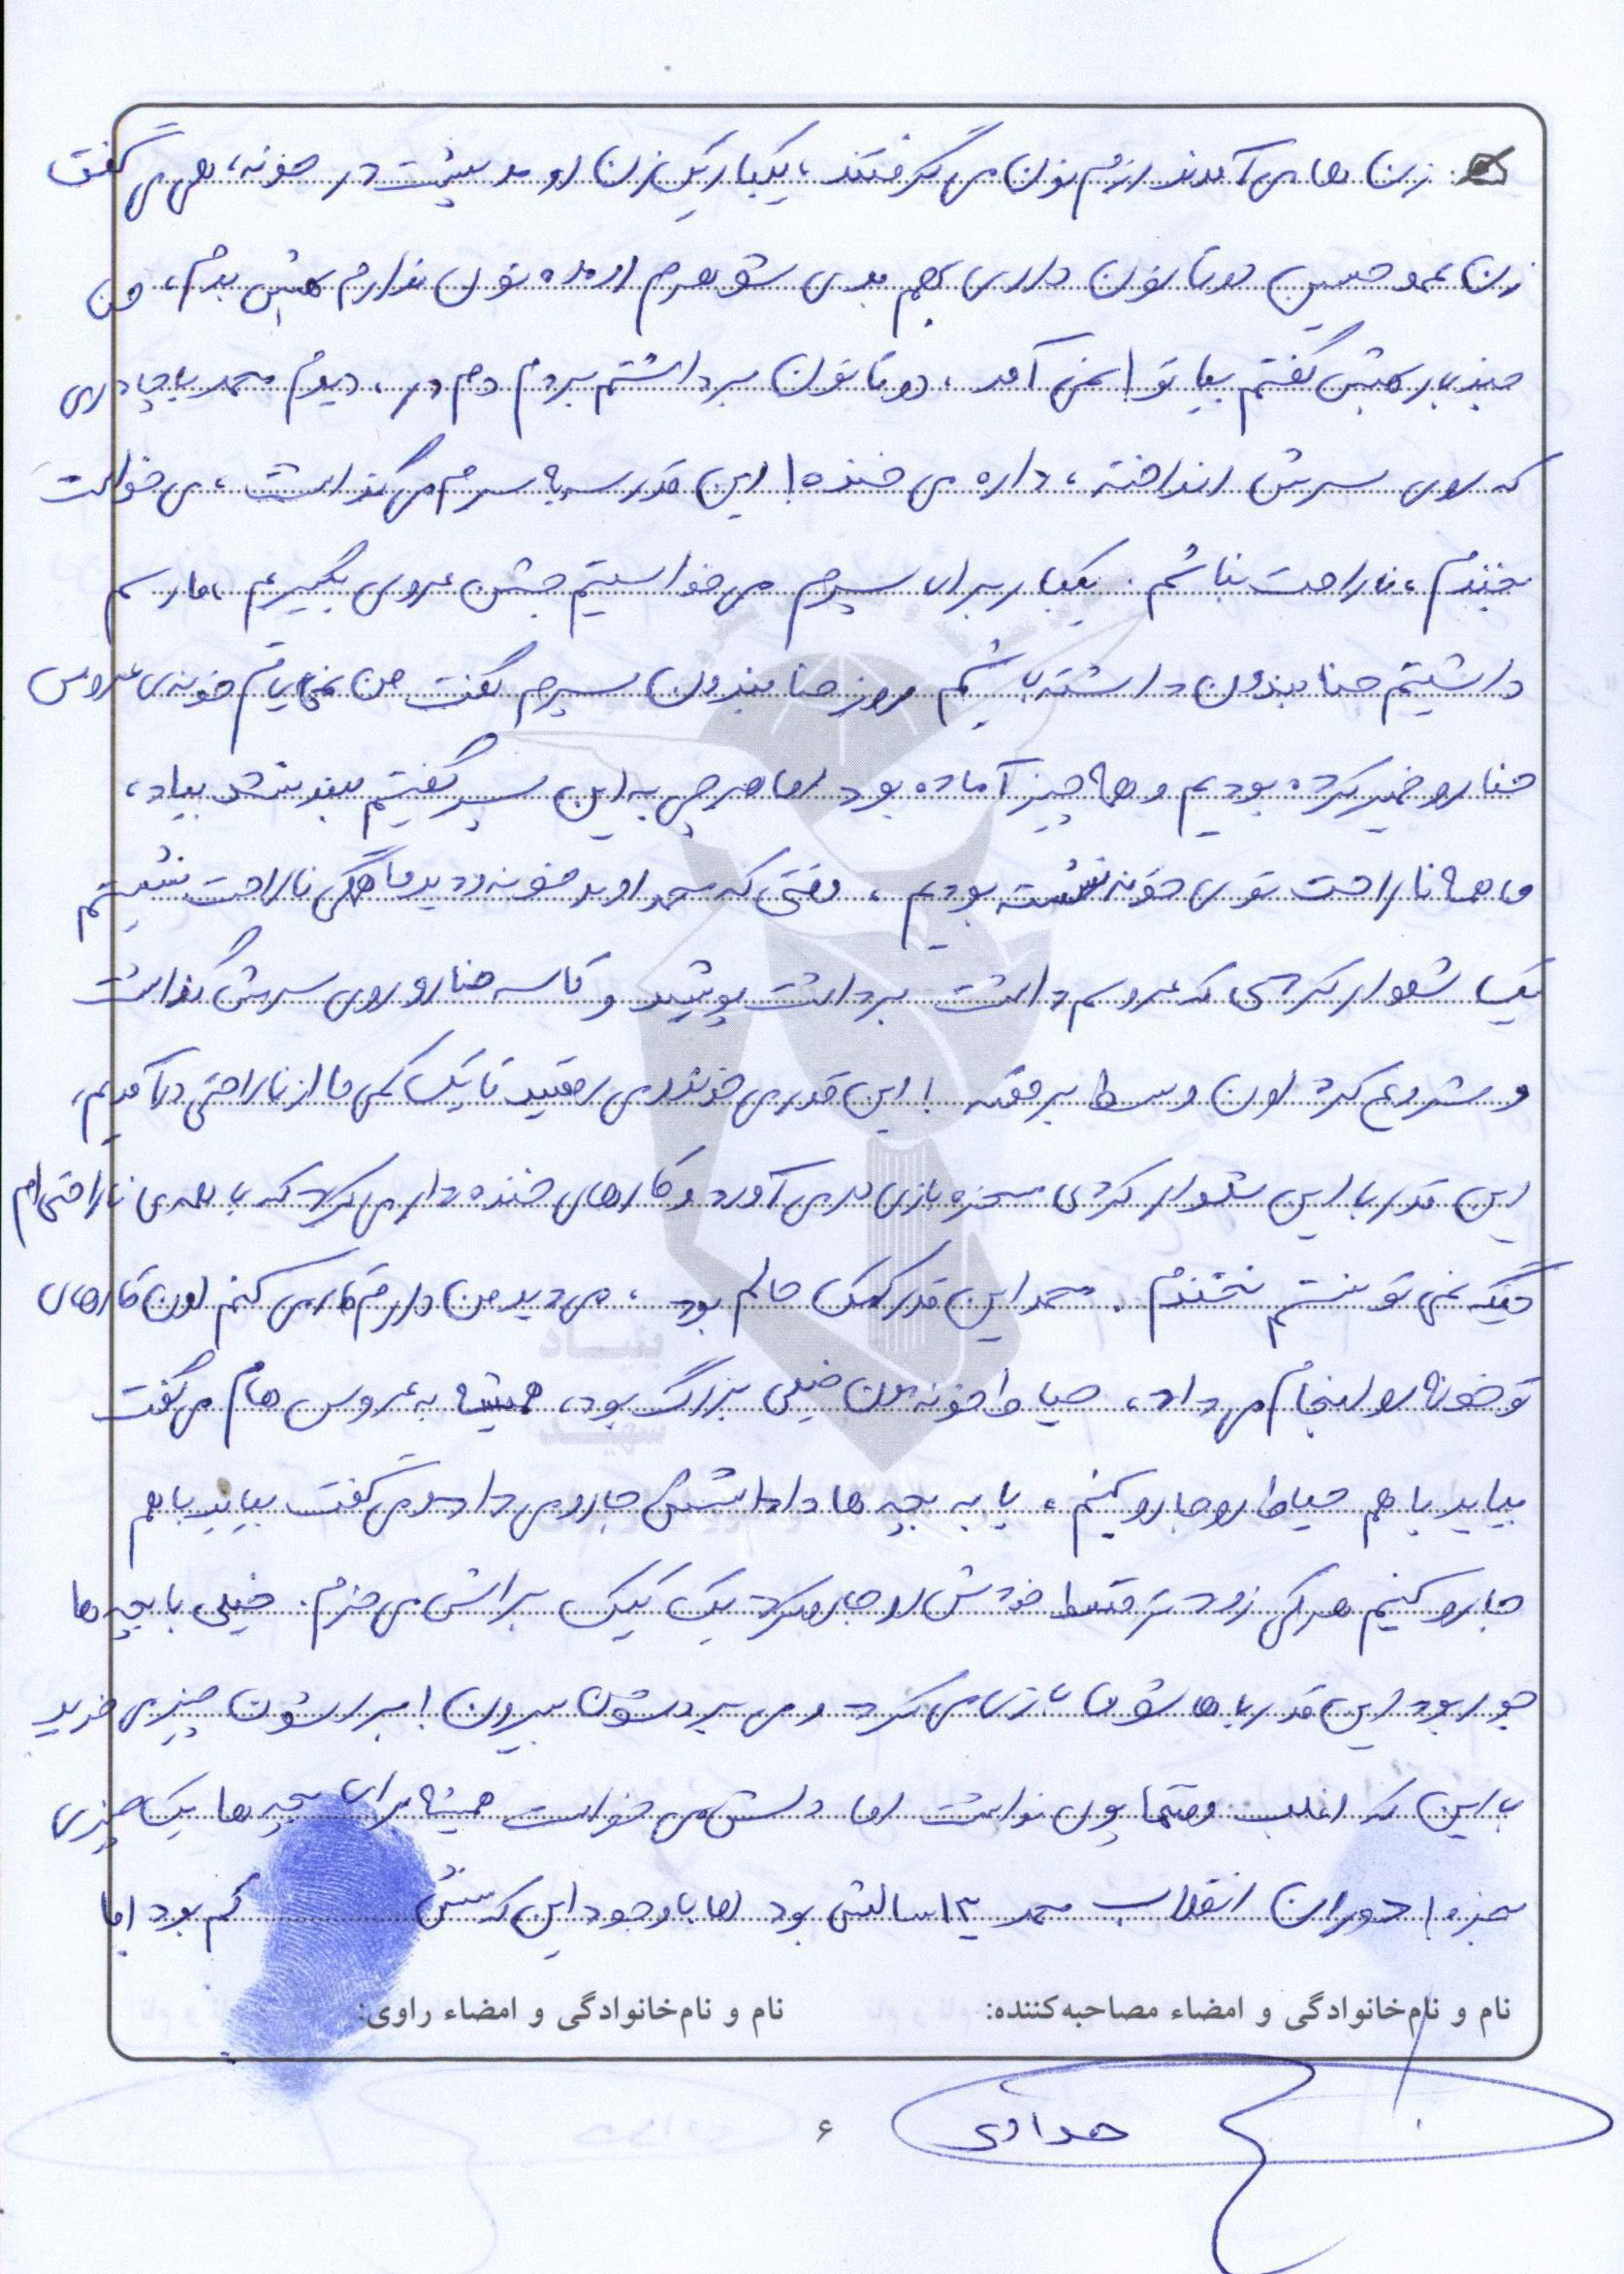 زن ها می آمدند ازم نون می گرفتند، یکبار یک زن اومد پشت در خونه، هی می گفت
زن عمو حسین دوتا نون داری بهم بدی شوهرم اومده نون ندارم بهش بدم، من
چند بار بهش گفتم بیا تو! نمی آمد، دوتا نون برداشتم بردم دم در، دیدم محمد با چادری
که روی سرش انداخته، داره می خنده! این قدر سربه سرم می گذاشت، می خواست
بخندم، ناراحت نباشم. یکبار برای پسرم می خواستیم جشن عروسی بگیریم، ما رسم
داشتیم حنا بندون داشته باشیم روز حنا بندون پسرم گفت من نمی یام خونه ی عروس
حنا رو خمیر کرده بودیم و همه چیز آماده بود اما هرچی به این پسر گفتیم بلند نشد بیاد،
ما همه ناراحت توی خونه نشسته بودیم، وقتی که محمد اومد خونه و دید ما همگی ناراحت نشستیم
یک شلوار کردی که عروسم داشت برداشت پوشید و کاسه حنا رو روی سرش گذاشت
و شروع کرد اون وسط برقصه! این قدر می خوند و می رقصید تا یک کمی ما از ناراحتی درآمدیم،
این قدر با این شلوار کردی مسخره بازی درمی آورد و کارهای خنده دار می کرد که با همه ی ناراحتی ام
دیگه نمی تونستم نخندم. محمد این قدر کمک حالم بود، می دید من دارم کار می کنم اون کارهای
تو خونه رو انجام می داد، حیاط خونه مون خیلی بزرگ بود، همیشه به عروس هام می گفت
بیاید با هم حیاط رو جارو کنیم، یا به بچه ها داداشش جارو می داد و می گفت بیاید باهم
جارو کنیم هرکی زودتر قسمت خودش رو جارو کرد یک کیک براش می خرم. خیلی با بچه ها
جور بود این قدر باهاشون بازی می کرد و می بردشون بیرون! براشون چیز می خرید
با این که اغلب وقتها پول نداشت اما دلش می خواست همیشه برای بچه ها یک چیزی
بخره! دوران انقلاب محمد ۱۳ سالش بود اما با وجود این که سنش کم بود اما
نام و نام‌خانوادگی و امضاء مصاحبه‌کننده: نام و نام‌خانوادگی و امضاء راوی:
۶
بنیاد
شهید